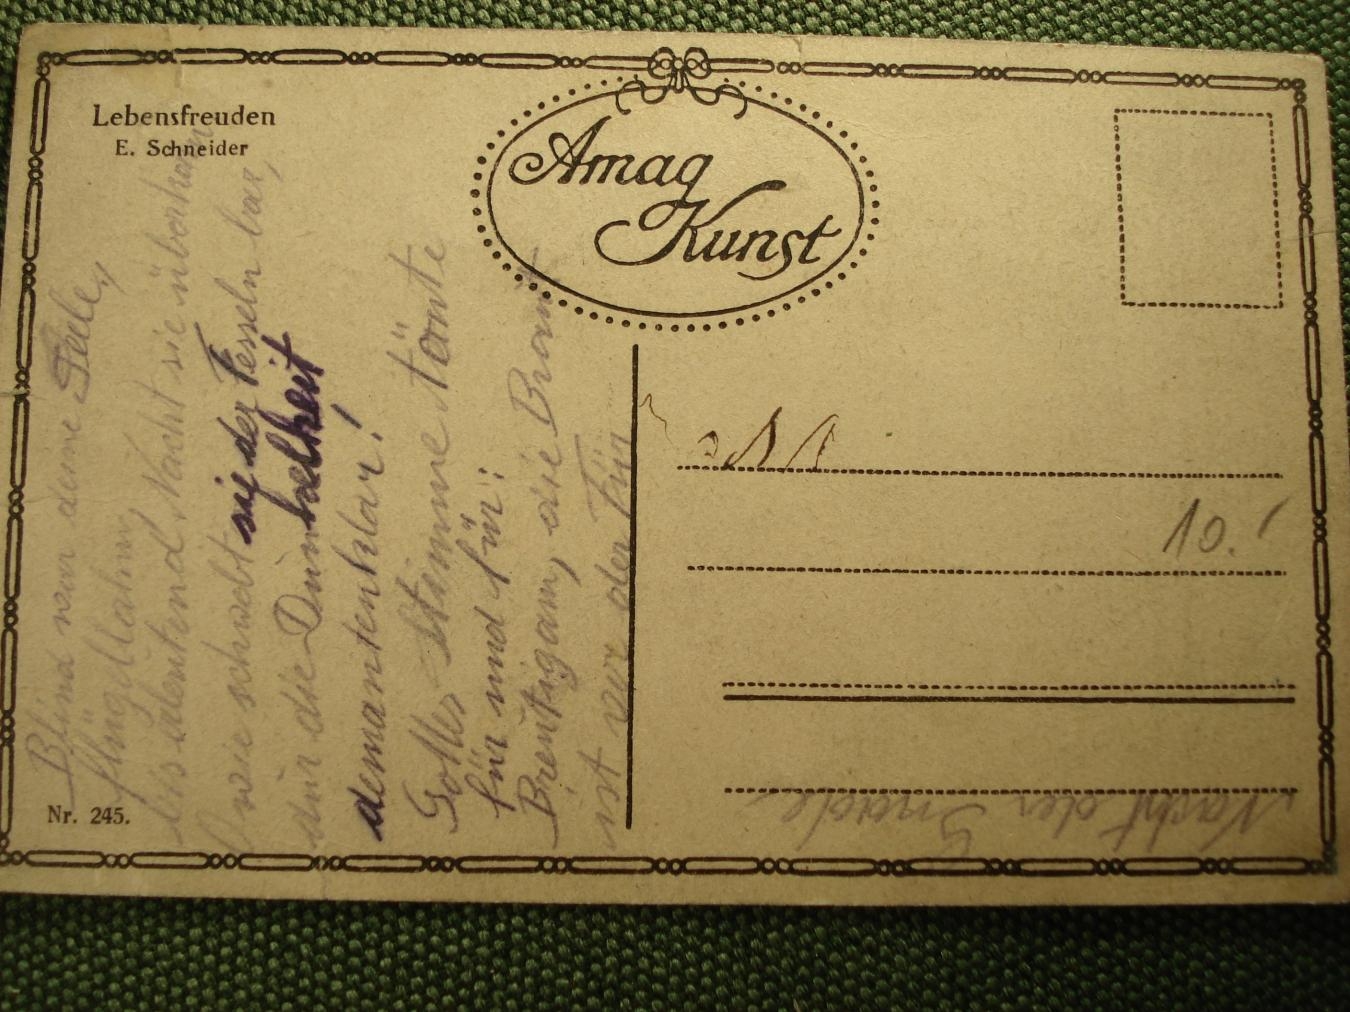 Lebensfreuden
E. Schneider
Amag
Kunst
Blind war deine Seele,
bis dentend Nacht sie überkam
wie schwebt sie der Fesseln bar,
dir die Dunkelheit
demantenklar!
Gottes Stimme tönte
für und für:
Bräutigam, die Braut
ist vor der Tür
10.
Nacht der Gnade
Nr. 245.